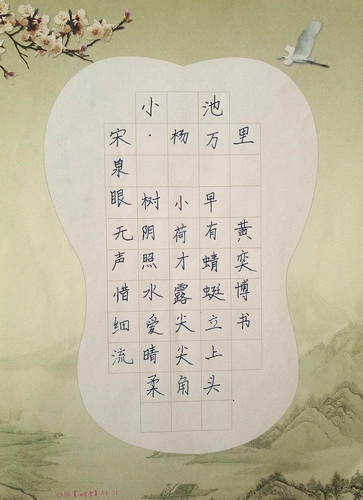 小池
宋·杨万里
泉眼无声惜细流
树阴照水爱晴柔
小荷才露尖尖角
早有蜻蜓立上头
黄奕博书